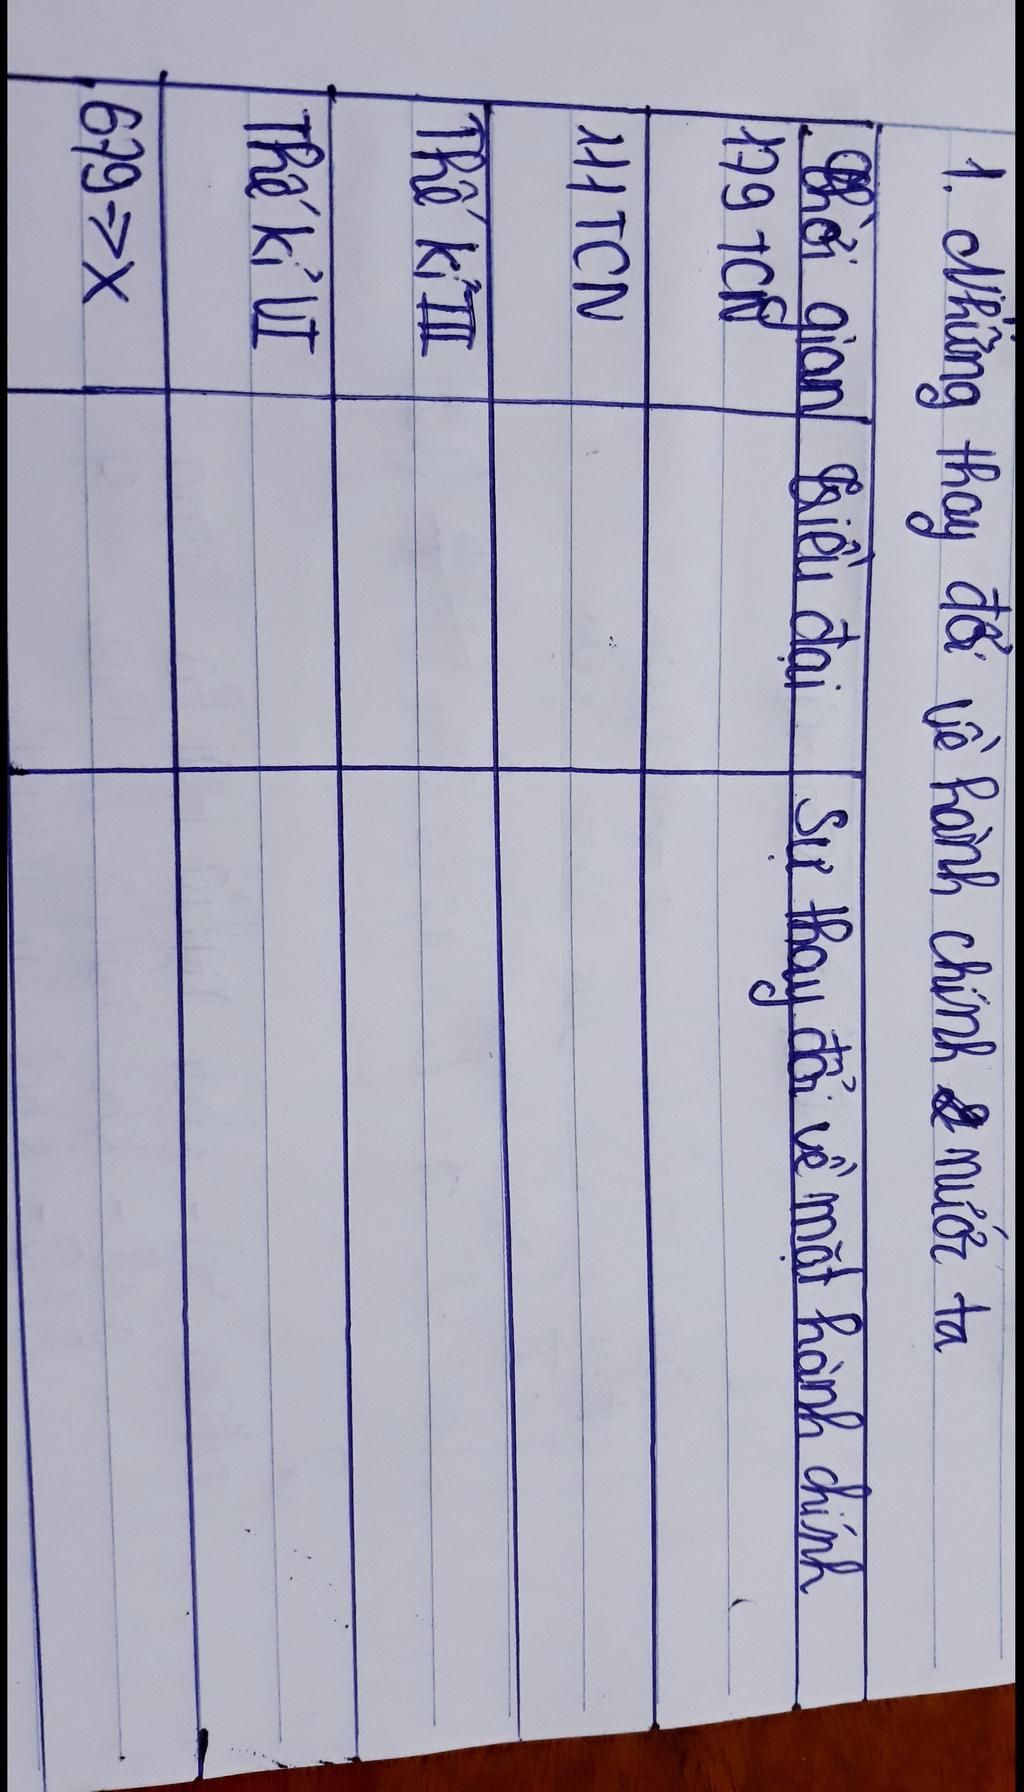 1. Những thay đổi về hành chính nước ta
Thời gian Triều đại Sự thay đổi về mặt hành chính
179 TCN
111 TCN
Thế kỉ III
Thế kỉ VI
679 => X